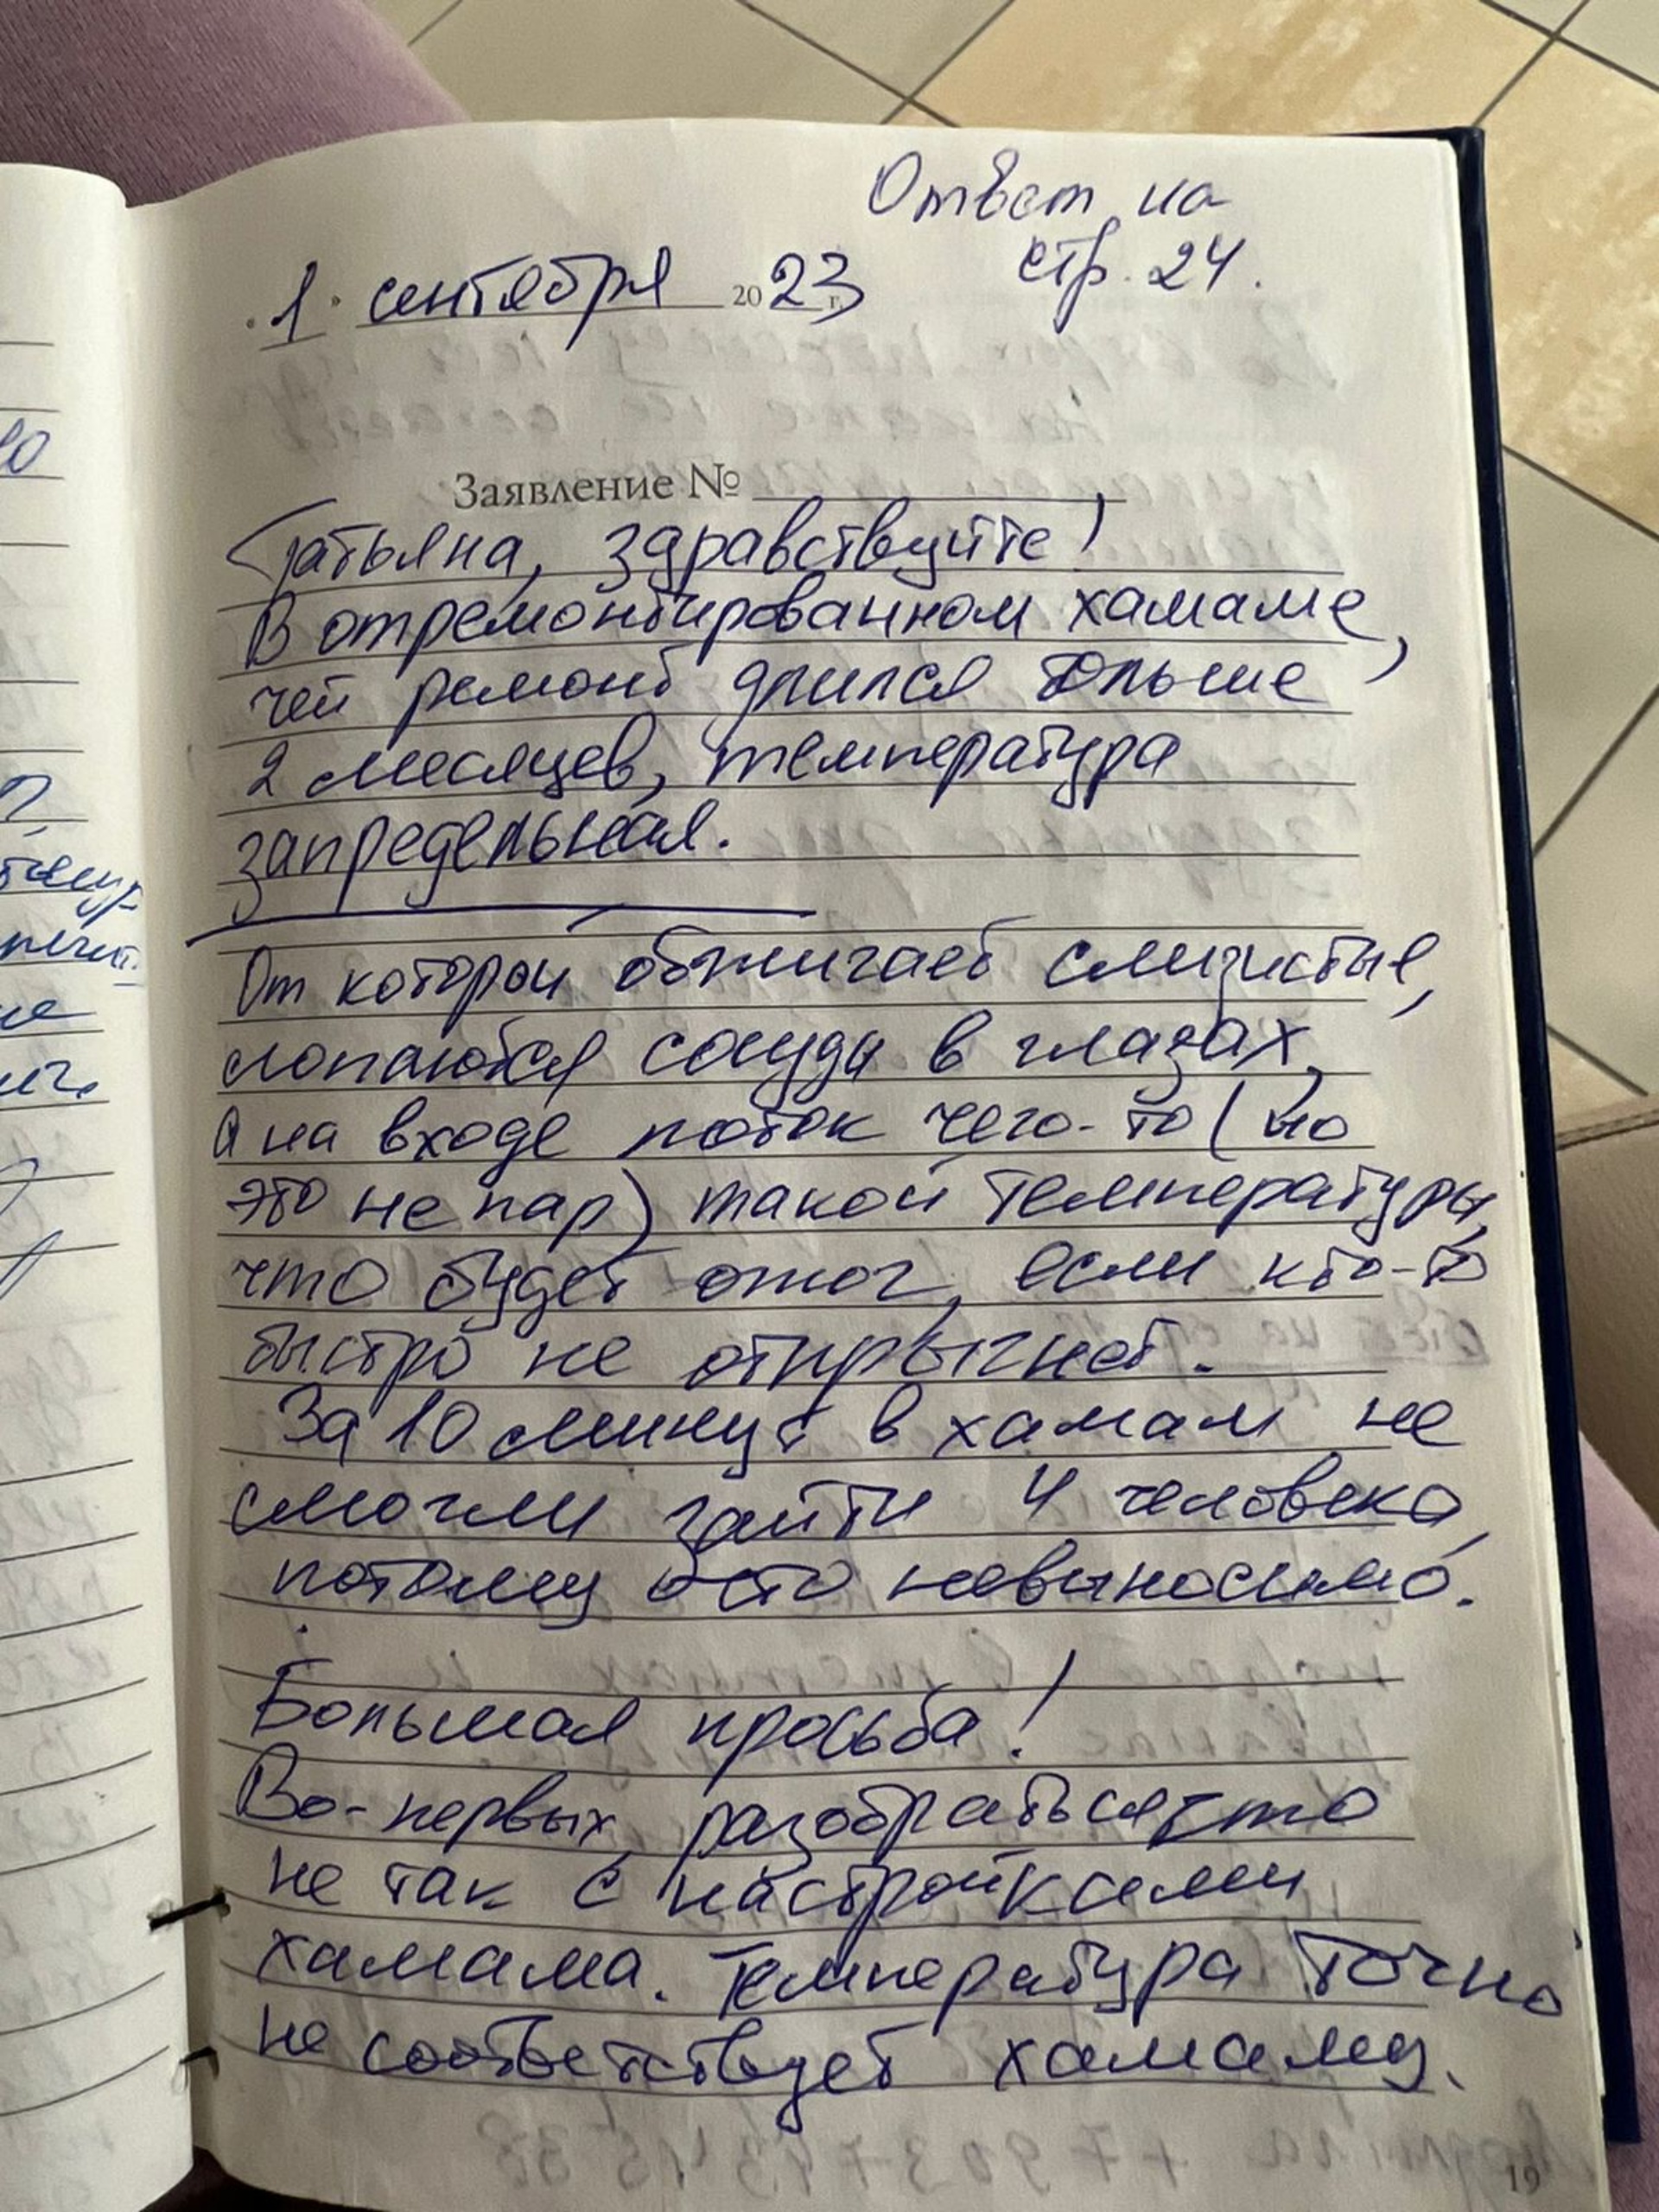 Ответ на
стр. 24.
"1" сентября 2023 г.
Заявление №
Татьяна, здравствуйте!
В отремонтированном хамаме,
чей ремонт длился больше
2 месяцев, температура
запредельная.
От которой обжигает слизистые,
лопаются сосуды в глазах,
а на входе поток чего-то (но
это не пар) такой температуры,
что будет ожог, если кто-то
быстро не отпрыгнет.
За 10 минут в хамам не
смогли зайти 4 человека,
потому что невыносимо.
Большая просьба!
Во-первых, разобраться, что
не так с настройками
хамама. Температура точно
не соответствует хамаму.
19